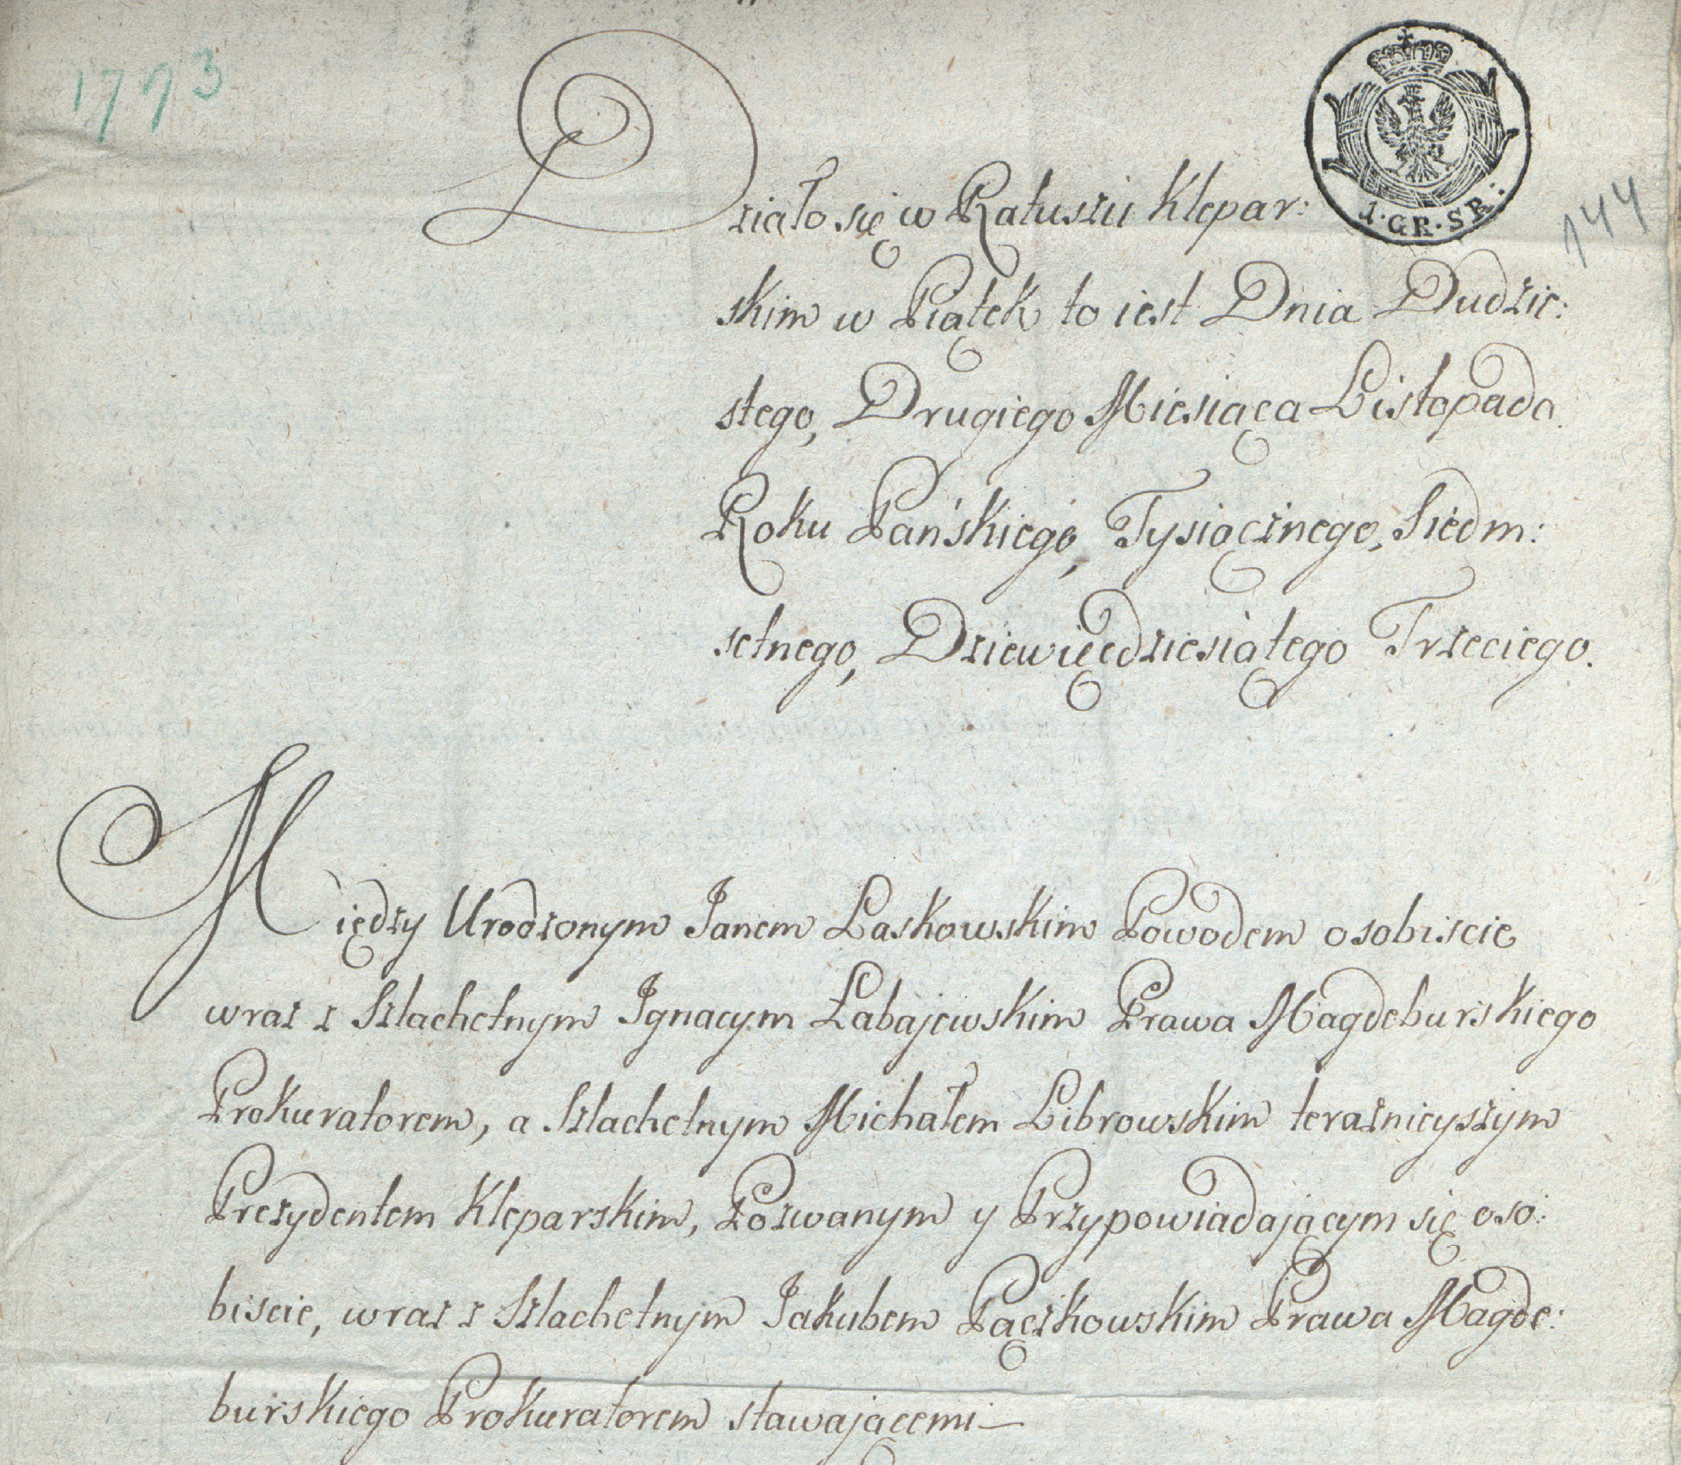 1793
1·GR·SR:
144
Działo się w Ratuszu Klepar:
skim w Piątek to iest Dnia Dudzie:
stego, Drugiego Miesiąca Listopada
Roku Pańskiego, Tysiącznego, Siedm:
setnego, Dziewięćdziesiątego Trzeciego.
Między Urodzonym Janem Laskowskim Powodem osobiscie
wraz z Szlachetnym Ignacym Łabajewskim Prawa Magdeburskiego
Prokuratorem, a Szlachetnym Michałem Librowskim teraznieyszym
Prezydentem Kleparskim, Pozwanym y Przypowiadającym się oso:
biscie, wraz z Szlachetnym Jakubem Pączkowskim Prawa Magde:
burskiego Prokuratorem stawającemi —